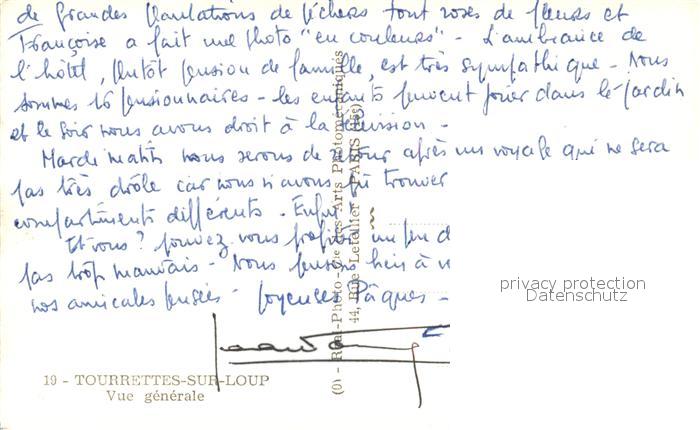 de grandes plantations de pêchers tout roses de fleurs et
Françoise a fait une photo "en couleurs" - L'ambiance de
l'hôtel, plutôt pension de famille, est très sympathique - Nous
sommes 16 pensionnaires - les enfants peuvent jouer dans le jardin
et le soir nous avons droit à la télévision -
Mardi matin nous serons de retour après un voyage qui ne sera
pas très drôle car nous n'avons pu trouver
compartiments différents - Enfin
Et vous? pouvez vous profiter un peu d
pas trop mauvais - Nous pensons bien à v
nos amicales pensées - Joyeuses Pâques -
19 - TOURRETTES-SUR-LOUP
Vue générale
(0) - Real-Photo - des Arts Photomécaniques
44, Rue Letellier - PARIS (15e)
privacy protection
Datenschutz